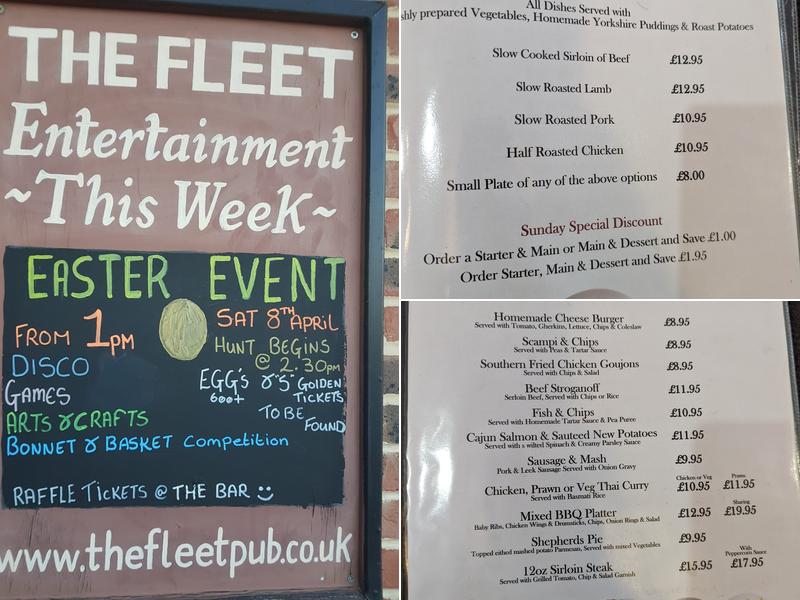 THE FLEET
Entertainment
~This Week~
EASTER EVENT
FROM 1PM
SAT 8TH APRIL
HUNT BEGINS
@ 2.30pm
DISCO
GAMES
EGG'S & "5" GOLDEN
600+ TICKETS
TO BE
FOUND
ARTS & CRAFTS
BONNET & BASKET Competition
RAFFLE TICKETS @ THE BAR
www.thefleetpub.co.uk
All Dishes Served with
shly prepared Vegetables, Homemade Yorkshire Puddings & Roast Potatoes
Slow Cooked Sirloin of Beef £12.95
Slow Roasted Lamb £12.95
Slow Roasted Pork £10.95
Half Roasted Chicken £10.95
Small Plate of any of the above options £8.00
Sunday Special Discount
Order a Starter & Main or Main & Dessert and Save £1.00
Order Starter, Main & Dessert and Save £1.95
Homemade Cheese Burger £8.95
Served with Tomato, Gherkins, Lettuce, Chips & Coleslaw
Scampi & Chips £8.95
Served with Peas & Tartar Sauce
Southern Fried Chicken Goujons £8.95
Served with Chips & Salad
Beef Stroganoff £11.95
Serloin Beef, Served with Chips or Rice
Fish & Chips £10.95
Served with Homemade Tartar Sauce & Pea Puree
Cajun Salmon & Sauteed New Potatoes £11.95
Served with s wilted Spinach & Creamy Parsley Sauce
Sausage & Mash £9.95
Pork & Leek Sausage Served with Onion Gravy
Chicken or Veg Prawn
Chicken, Prawn or Veg Thai Curry £10.95 £11.95
Served with Basmati Rice
Sharing
Mixed BBQ Platter £12.95 £19.95
Baby Ribs, Chicken Wings & Drumsticks, Chips, Onion Rings & Salad
Shepherds Pie £9.95
Topped eithed mashed potato Parmesan, Served with mixed Vegetables
With
Peppercorn Sauce
12oz Sirloin Steak £15.95 £17.95
Served with Grilled Tomato, Chip & Salad Garnish